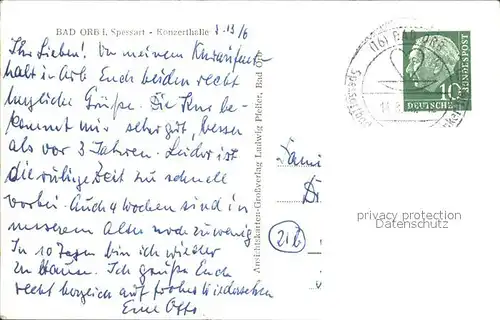 BAD ORB i. Spessart - Konzerthalle
Ihr Lieben! Von meinem Kuraufent-
halt in Orb Euch beiden recht
herzliche Grüße. Die Kur be-
kommt mir sehr gut, besser
als vor 3 Jahren. Leider ist
die ruhige Zeit zu schnell
vorbei. Auch 4 Wochen sind in
unserem Alter noch zu wenig
In 10 Tagen bin ich wieder
zu Hause. Ich grüße Euch
recht herzlich auf frohes Wiedersehen
Eure
Ansichtskarten-Großverlag Ludwig Pfeifer, Bad Orb
(16) BAD ORB
Spessart
10
DEUTSCHE
BUNDESPOST
Fami
21b
privacy protection
Datenschutz